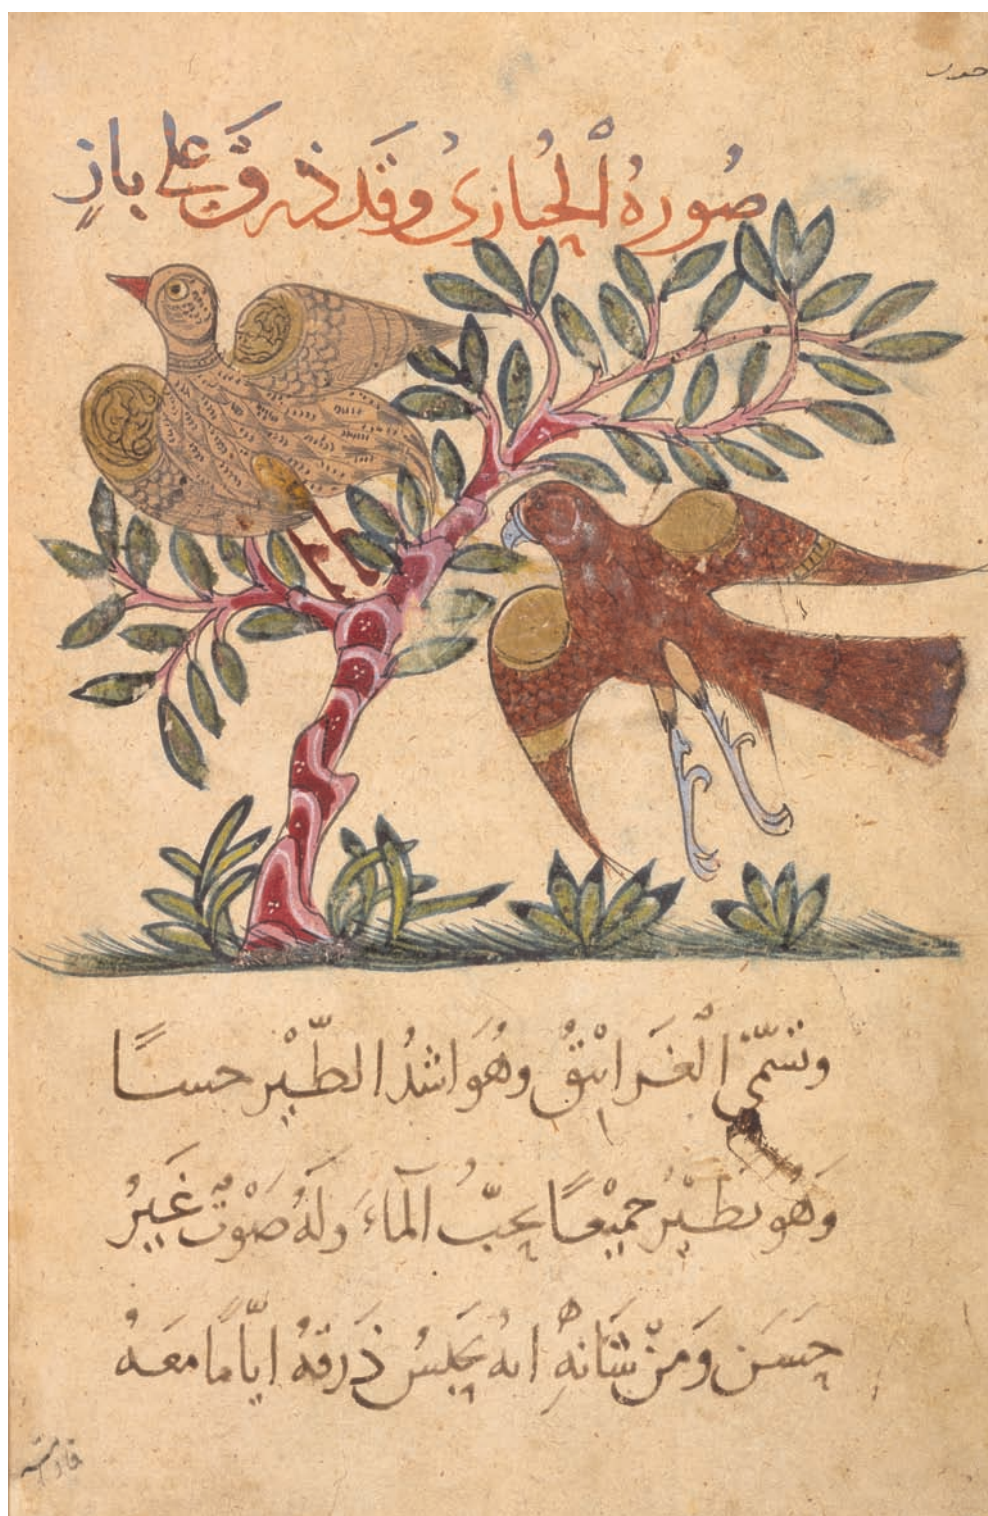 صُورهُ الْحُبَارىُ وقَد ذرَقَ على بازٍ
وتسَمّى الْغَرانيْقُ وهُوَ اشدُ الطّيْر حسنًا
وَهُو يطيْرُ جَميْعًا يحبُّ الْماءَ وَلَهُ صَوْتٌ غَيرُ
حَسَن وَمنْ شَانهِ انهُ يحبسُ ذَرقهُ ايّامًا مَعَهُ